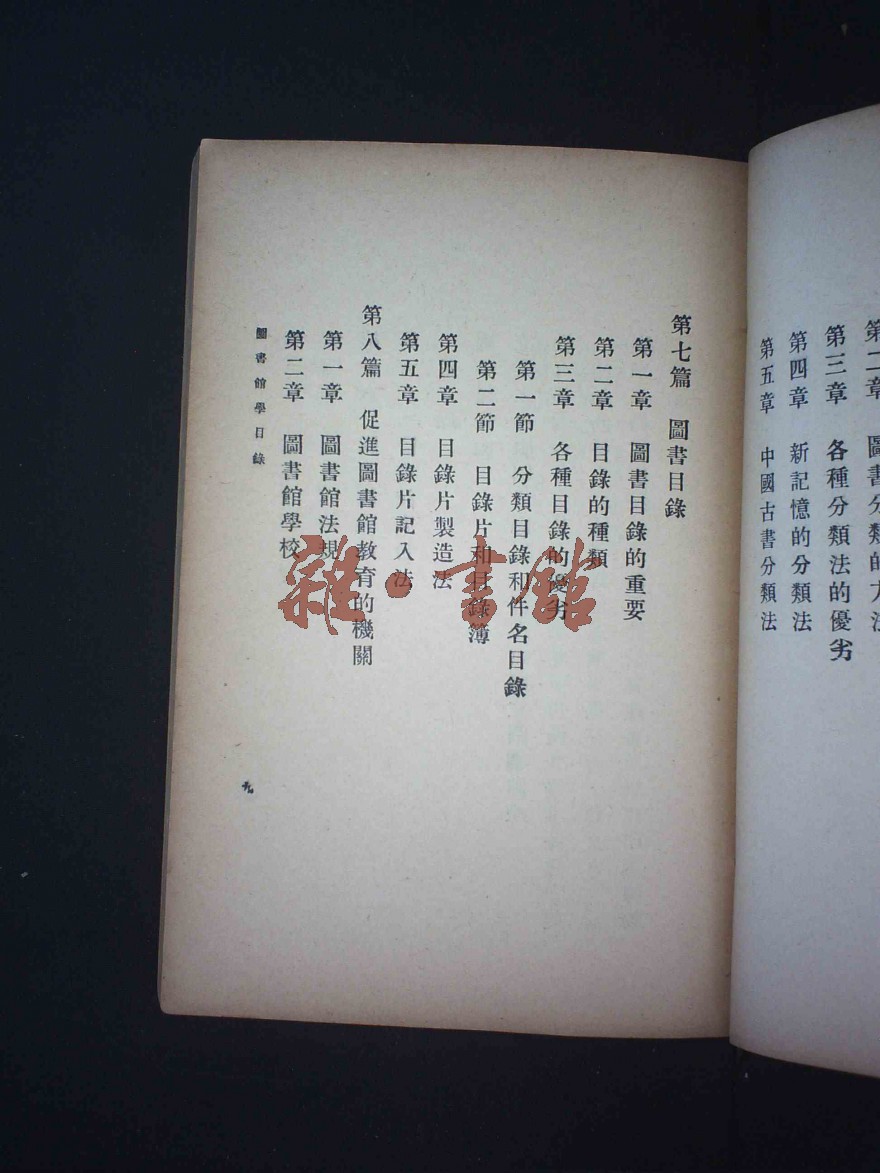 第三章　各種分類法的優劣
第四章　新記憶的分類法
第五章　中國古書分類法
第七篇　圖書目錄
第一章　圖書目錄的重要
第二章　目錄的種類
第三章　各種目錄的優劣
第一節　分類目錄和件名目錄
第二節　目錄片和目錄簿
第四章　目錄片製造法
第五章　目錄片記入法
第八篇　促進圖書館教育的機關
第一章　圖書館法規
第二章　圖書館學校
圖書館學目錄
雜·書館